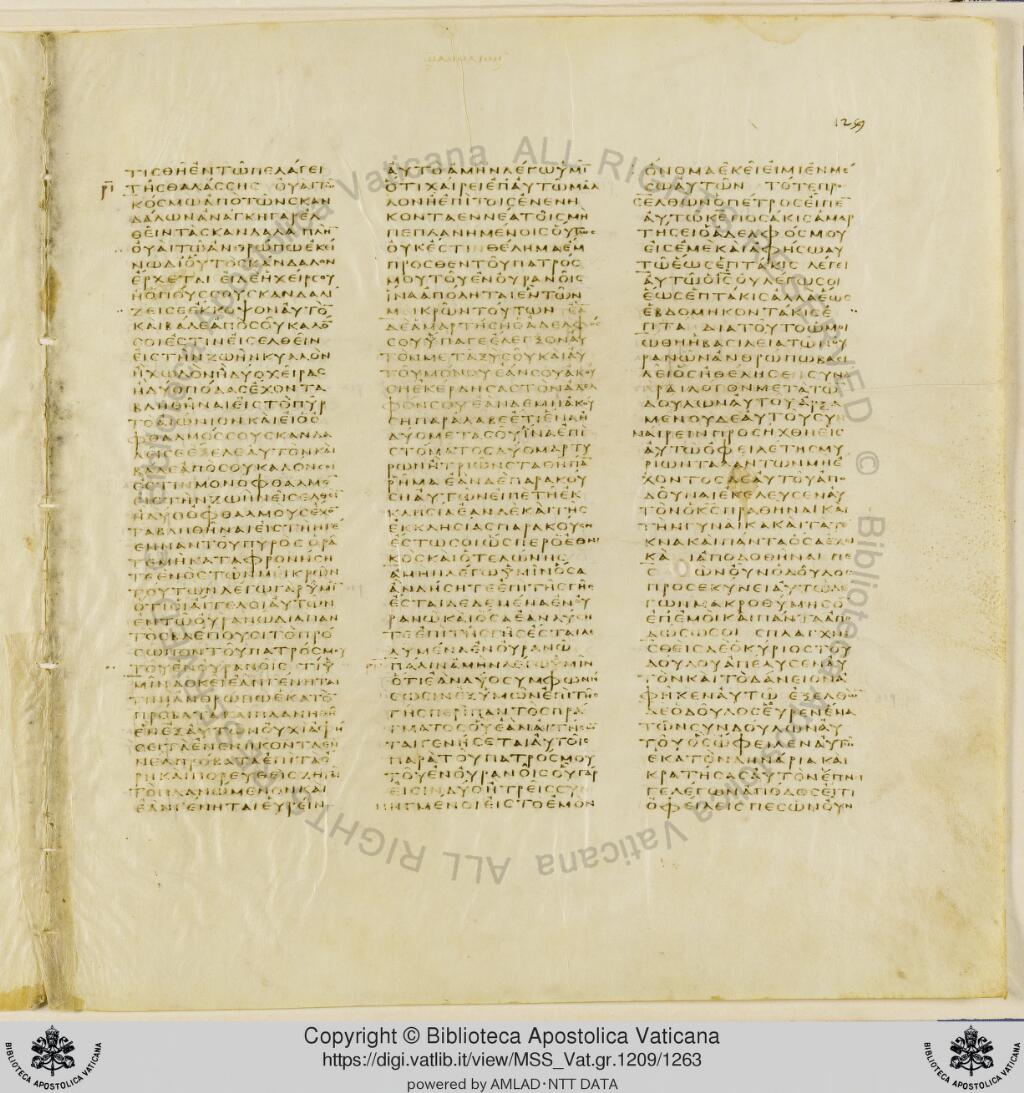 1259
ΤΙϹΘΗΕΝΤΩΠΕΛΑΓΕΙ
ΤΗϹΘΑΛΑϹϹΗϹ ΟΥΑΙΤΩ
ΚΟϹΜΩΑΠΟΤΩΝϹΚΑΝ
ΔΑΛΩΝΑΝΑΓΚΗΓΑΡΕΛ
ΘΕΙΝΤΑϹΚΑΝΔΑΛΑΠΛΗ
ΟΥΑΙΤΩΑΝΘΡΩΠΩΕΚΕΙ
ΝΩΔΙΟΥΤΟϹΚΑΝΔΑΛΟΝ
ΕΡΧΕΤΑΙ ΕΙΔΕΗΧΕΙΡϹΟΥ
ΗΟΠΟΥϹϹΟΥϹΚΑΝΔΑΛΙ
ΖΕΙϹΕΕΚΚΟΨΟΝΑΥΤΟ
ΚΑΙΒΑΛΕΑΠΟϹΟΥΚΑΛΟ
ϹΟΙΕϹΤΙΝΕΙϹΕΛΘΕΙΝ
ΕΙϹΤΗΝΖΩΗΝΚΥΛΛΟΝ
ΗΧΩΛΟΝΗΔΥΟΧΕΙΡΑϹ
ΗΔΥΟΠΟΔΑϹΕΧΟΝΤΑ
ΒΛΗΘΗΝΑΙΕΙϹΤΟΠΥΡ
ΤΟΑΙΩΝΙΟΝΚΑΙΕΙΟΟ
ΦΘΑΛΜΟϹϹΟΥϹΚΑΝΔΑ
ΛΙϹΕΙϹΕΕΞΕΛΕΑΥΤΟΝΚΑΙ
ΒΑΛΕΑΠΟϹΟΥΚΑΛΟΝϹΟΙ
ΕϹΤΙΝΜΟΝΟΦΘΑΛΜΟ
ΕΙϹΤΗΝΖΩΗΝΕΙϹΕΛΘΕΙ
ΗΔΥΟΟΦΘΑΛΜΟΥϹΕΧΟ
ΤΑΒΛΗΘΗΝΑΙΕΙϹΤΗΝΓΕ
ΕΝΝΑΝΤΟΥΠΥΡΟϹΟΡΑ
ΤΕΜΗΚΑΤΑΦΡΟΝΗϹΗ
ΤΕΕΝΟϹΤΩΝΜΕΙΚΡΩΝ
ΤΟΥΤΩΝΛΕΓΩΓΑΡΥΜΙ
ΟΤΙΟΙΑΓΓΕΛΟΙΑΥΤΩΝ
ΕΝΤΩΟΥΡΑΝΩΔΙΑΠΑΝ
ΤΟϹΒΛΕΠΟΥϹΙΤΟΠΡΟ
ϹΩΠΟΝΤΟΥΠΑΤΡΟϹΜΟΥ
ΤΟΥΕΝΟΥΡΑΝΟΙϹ ΤΙΥ
ΜΙΝΔΟΚΕΙΕΑΝΓΕΝΗΤΑΙ
ΤΙΝΙΑΝΘΡΩΠΩΕΚΑΤΟ
ΠΡΟΒΑΤΑΚΑΙΠΛΑΝΗΘΗ
ΕΝΕΞΑΥΤΩΝΟΥΧΙΑΦΗ
ϹΕΙΤΑΕΝΕΝΗΚΟΝΤΑΕΝ
ΝΕΑΠΡΟΒΑΤΑΕΠΙΤΑΟ
ΡΗΚΑΙΠΟΡΕΥΘΕΙϹΖΗΤΕΙ
ΤΟΠΛΑΝΩΜΕΝΟΝΚΑΙ
ΕΑΝΓΕΝΗΤΑΙΕΥΡΕΙΝ
ΑΥΤΟΑΜΗΝΛΕΓΩΥΜΙ
ΟΤΙΧΑΙΡΕΙΕΠΑΥΤΩΜΑΛ
ΛΟΝΗΕΠΙΤΟΙϹΕΝΕΝΗ
ΚΟΝΤΑΕΝΝΕΑΤΟΙϹΜΗ
ΠΕΠΛΑΝΗΜΕΝΟΙϹΟΥΤΩϹ
ΟΥΚΕϹΤΙΝΘΕΛΗΜΑΕΜ
ΠΡΟϹΘΕΝΤΟΥΠΑΤΡΟϹ
ΜΟΥΤΟΥΕΝΟΥΡΑΝΟΙϹ
ΙΝΑΑΠΟΛΗΤΑΙΕΝΤΩΝ
ΜΕΙΚΡΩΝΤΟΥΤΩΝ ΕΑ
ΔΕΑΜΑΡΤΗϹΗΟΑΔΕΛΦΟϹ
ϹΟΥΥΠΑΓΕΕΛΕΓΞΟΝΑΥ
ΤΟΝΜΕΤΑΞΥϹΟΥΚΑΙΑΥ
ΤΟΥΜΟΝΟΥΕΑΝϹΟΥΑΚΟΥ
ϹΗΕΚΕΡΔΗϹΑϹΤΟΝΑΔΕΛ
ΦΟΝϹΟΥΕΑΝΔΕΜΗΑΚΟΥ
ϹΗΠΑΡΑΛΑΒΕΕΤΙΕΝΑΗ
ΔΥΟΜΕΤΑϹΟΥΙΝΑΕΠΙ
ϹΤΟΜΑΤΟϹΔΥΟΜΑΡΤΥ
ΡΩΝΗΤΡΙΩΝϹΤΑΘΗΠΑ
ΡΗΜΑ ΕΑΝΔΕΠΑΡΑΚΟΥ
ϹΗΑΥΤΩΝΕΙΠΕΤΗΕΚ
ΚΛΗϹΙΑΕΑΝΔΕΚΑΙΤΗϹ
ΕΚΚΛΗϹΙΑϹΠΑΡΑΚΟΥϹΗ
ΕϹΤΩϹΟΙΩϹΠΕΡΟΕΘΝΙ
ΚΟϹΚΑΙΟΤΕΛΩΝΗϹ
ΑΜΗΝΛΕΓΩΥΜΙΝΟϹΑ
ΑΝΔΗϹΗΤΕΕΠΙΤΗϹΓΗϹ
ΕϹΤΑΙΔΕΔΕΜΕΝΑΕΝΟΥ
ΡΑΝΩΚΑΙΟϹΑΕΑΝΛΥϹΗ
ΤΕΕΠΙΤΗϹΓΗϹΕϹΤΑΙΛΕ
ΛΥΜΕΝΑΕΝΟΥΡΑΝΩ
ΠΑΛΙΝΑΜΗΝΛΕΓΩΥΜΙΝ
ΟΤΙΕΑΝΔΥΟϹΥΜΦΩΝΗ
ϹΩϹΙΝΕΞΥΜΩΝΕΠΙΤΗϹ
ΓΗϹΠΕΡΙΠΑΝΤΟϹΠΡΑ
ΓΜΑΤΟϹΟΥΕΑΝΑΙΤΗϹΩ
ΤΑΙΓΕΝΗϹΕΤΑΙΑΥΤΟΙϹ
ΠΑΡΑΤΟΥΠΑΤΡΟϹΜΟΥ
ΤΟΥΕΝΟΥΡΑΝΟΙϹΟΥΓΑΡ
ΕΙϹΙΝΔΥΟΗΤΡΕΙϹϹΥ
ΝΗΓΜΕΝΟΙΕΙϹΤΟΕΜΟΝ
ΟΝΟΜΑΕΚΕΙΕΙΜΙΕΝΜΕ
ϹΩΑΥΤΩΝ ΤΟΤΕΠΡΟ
ϹΕΛΘΩΝΟΠΕΤΡΟϹΕΙΠΕ
ΑΥΤΩΚΕΠΟϹΑΚΙϹΑΜΑΡ
ΤΗϹΕΙΟΑΔΕΛΦΟϹΜΟΥ
ΕΙϹΕΜΕΚΑΙΑΦΗϹΩΑΥ
ΤΩΕΩϹΕΠΤΑΚΙϹ ΛΕΓΕΙ
ΑΥΤΩΟΙϹΟΥΛΕΓΩϹΟΙ
ΕΩϹΕΠΤΑΚΙϹΑΛΛΑΕΩϹ
ΕΒΔΟΜΗΚΟΝΤΑΚΙϹΕ
ΠΤΑ ΔΙΑΤΟΥΤΟΩΜΟΙ
ΩΘΗΗΒΑϹΙΛΕΙΑΤΩΝΟΥ
ΡΑΝΩΝΑΝΘΡΩΠΩΒΑϹΙ
ΛΕΙΟϹΗΘΕΛΗϹΕϹΥΝΑ
ΡΑΙΛΟΓΟΝΜΕΤΑΤΩ
ΔΟΥΛΩΝΑΥΤΟΥΑΡΞΑ
ΜΕΝΟΥΔΕΑΥΤΟΥϹΥ
ΝΑΙΡΕΙΝΠΡΟϹΗΧΘΗΕΙϹ
ΑΥΤΩΟΦΕΙΛΕΤΗϹΜΥ
ΡΙΩΝΤΑΛΑΝΤΩΝΜΗΕ
ΧΟΝΤΟϹΔΕΑΥΤΟΥΑΠΟ
ΔΟΥΝΑΙΕΚΕΛΕΥϹΕΝΑΥ
ΤΟΝΟΚϹΠΡΑΘΗΝΑΙΚΑΙ
ΤΗΝΓΥΝΑΙΚΑΚΑΙΤΑΤΕ
ΚΝΑΚΑΙΠΑΝΤΑΟϹΑΕΧΕΙ
ΚΑΙΑΠΟΔΟΘΗΝΑΙ ΠΕ
Ϲ ΩΝΟΥΝΟΔΟΥΛΟϹ
ΠΡΟϹΕΚΥΝΕΙΑΥΤΩΛΕ
ΓΩΝΜΑΚΡΟΘΥΜΗϹΟ
ΕΠΕΜΟΙΚΑΙΠΑΝΤΑΑΠΟ
ΔΩϹΩϹΟΙ ϹΠΛΑΓΧΝΙ
ϹΘΕΙϹΔΕΟΚΥΡΙΟϹΤΟΥ
ΔΟΥΛΟΥΑΠΕΛΥϹΕΝΑΥ
ΤΟΝΚΑΙΤΟΔΑΝΕΙΟΝΑ
ΦΗΚΕΝΑΥΤΩ ΕΞΕΛΘΩΝ
ΔΕΟΔΟΥΛΟϹΕΥΡΕΝΕΝΑ
ΤΩΝϹΥΝΔΟΥΛΩΝΑΥ
ΤΟΥΟϹΩΦΕΙΛΕΝΑΥΤΩ
ΕΚΑΤΟΝΔΗΝΑΡΙΑΚΑΙ
ΚΡΑΤΗϹΑϹΑΥΤΟΝΕΠΝΙ
ΓΕΛΕΓΩΝΑΠΟΔΟϹΕΙΤΙ
ΟΦΕΙΛΕΙϹΠΕϹΩΝΟΥΝ
Copyright © Biblioteca Apostolica Vaticana
https://digi.vatlib.it/view/MSS_Vat.gr.1209/1263
powered by AMLAD·NTT DATA